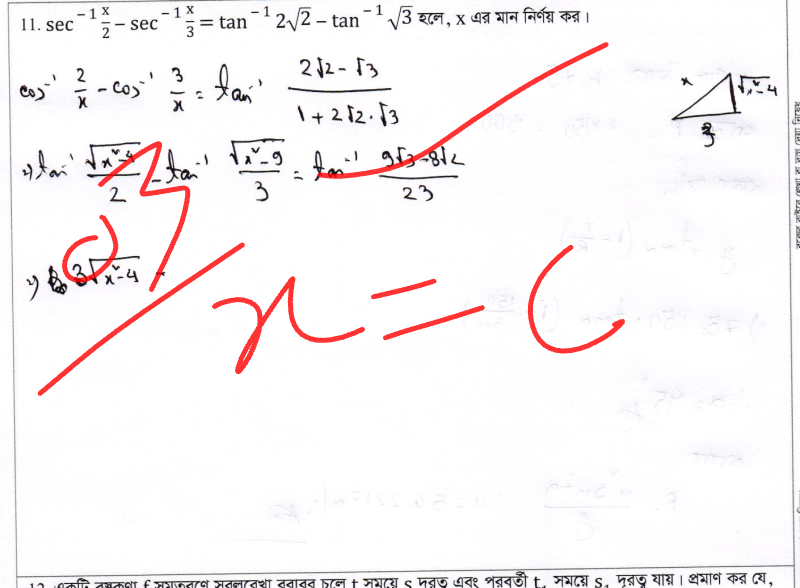 11. sec⁻¹ x/2 − sec⁻¹ x/3 = tan⁻¹ 2√2 − tan⁻¹ √3 হলে, x এর মান নির্ণয় কর।
cos⁻¹ 2/x − cos⁻¹ 3/x = tan⁻¹ (2√2 − √3)/(1 + 2√2·√3)
x √x²−4
2
⇒ tan⁻¹ √x²−4/2 − tan⁻¹ √x²−9/3 = tan⁻¹ (9√3 − 8√2)/23
⇒ 3√x²−4 −
x = 6
12. একটি বস্তুকণা f সমত্বরণে সরলরেখা বরাবর চলে t সময়ে s দূরত্ব এবং পরবর্তী t, সময়ে s, দূরত্ব যায়। প্রমাণ কর যে,